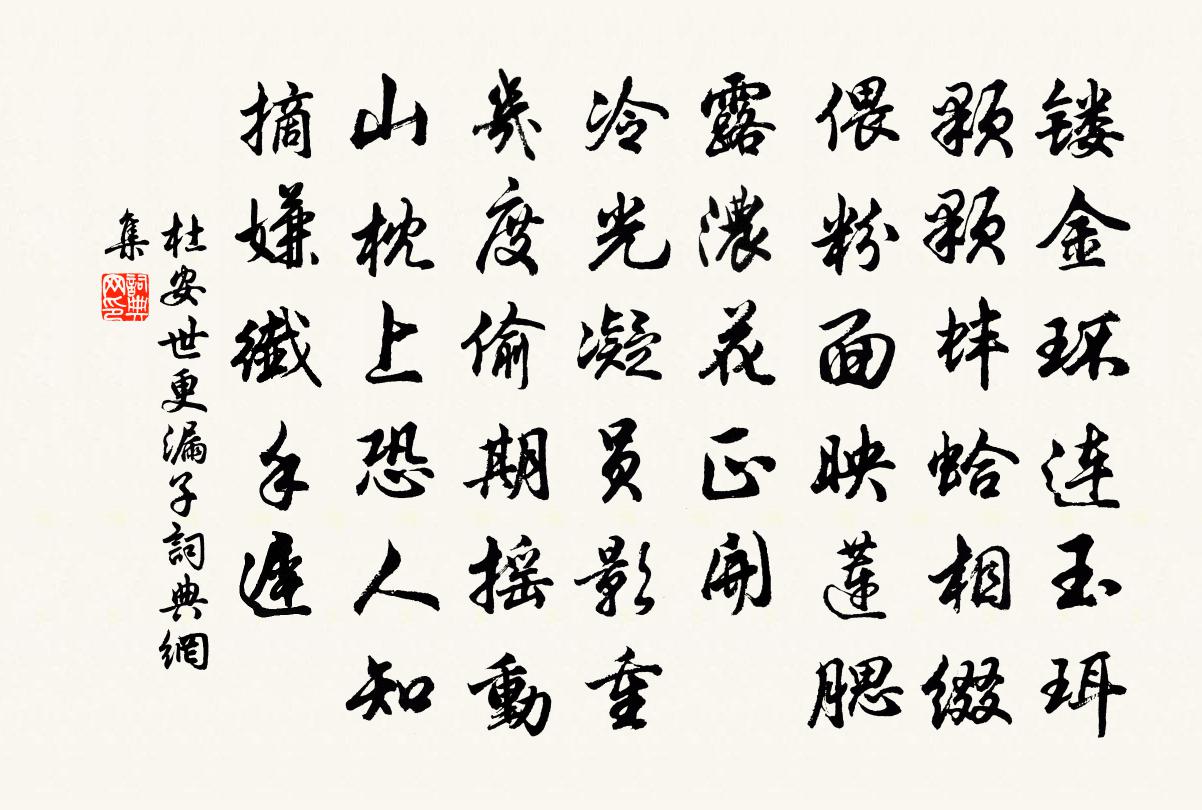 镂金环连玉珥
颗颗蚌蛤相缀
偎粉面映莲腮
露濃花正開
冷光凝员影重
幾度偷期摇動
山枕上恐人知
摘嫌纖手遲
杜安世更漏子詞典網
集
詞典网印